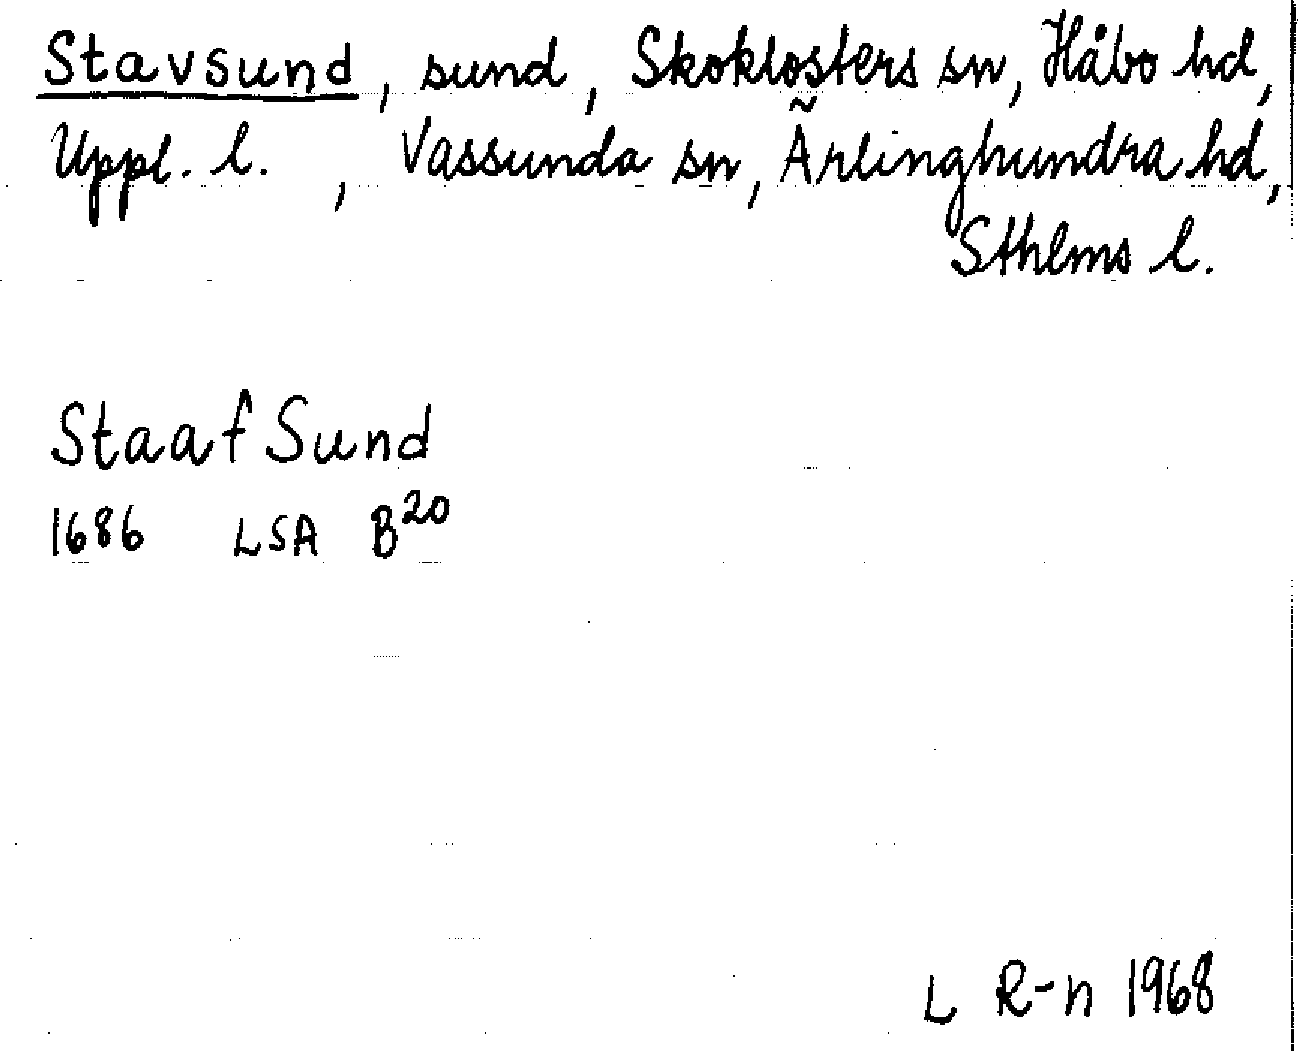 Stavsund, sund, Skoklosters sn, Håbo hd,
Uppl. l. , Vassunda sn, Ärlinghundra hd,
Sthlms l.
Staaf Sund
1686 LSA B²⁰
L R-n 1968